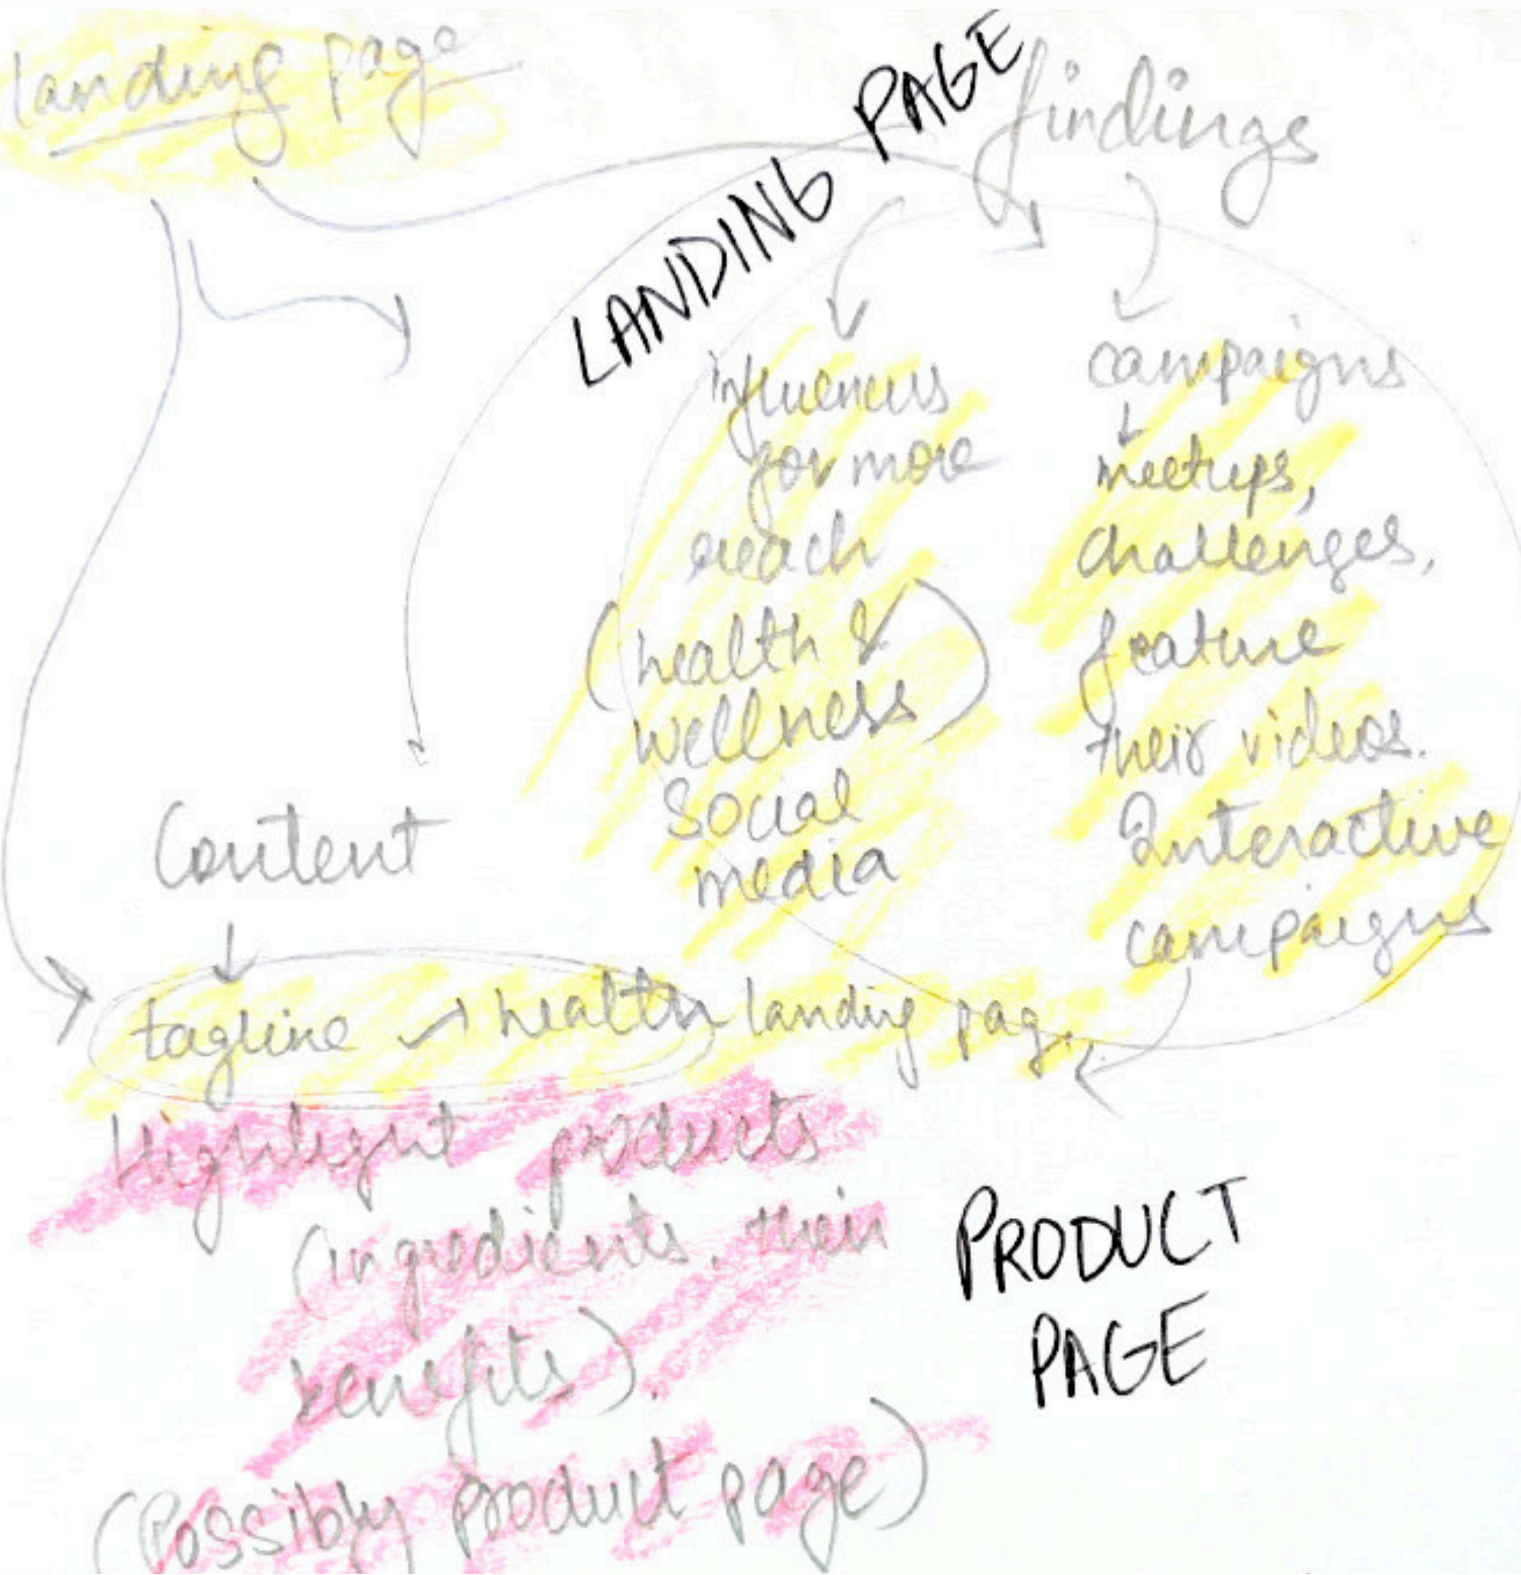 landing page
LANDING PAGE
findings
influencers
for more
reach
(health &
wellness)
Social
media
campaigns
meetups,
challenges,
feature
their videos.
Interactive
campaigns
Content
tagline → health landing page
Highlight products
(ingredients, their
benefits).
(Possibly product page)
PRODUCT
PAGE